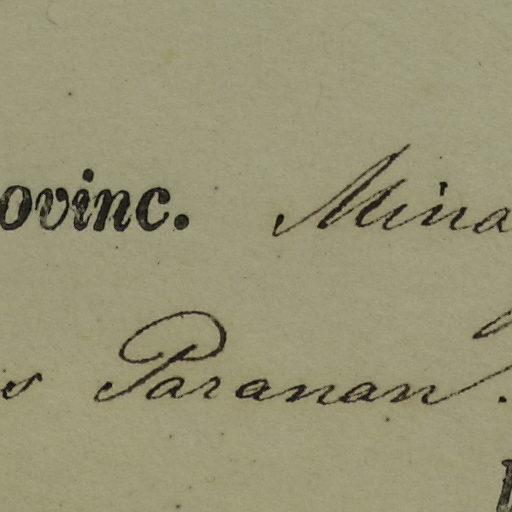 ovinc. Mina
s Paranan.